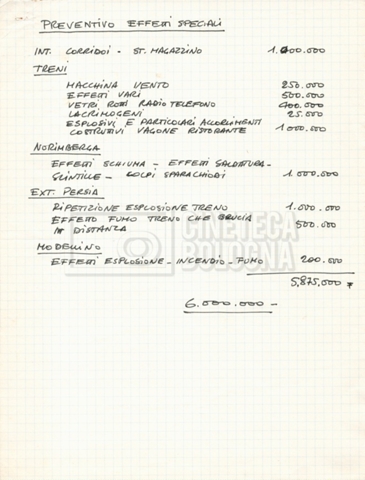 PREVENTIVO EFFETTI SPECIALI
INT. CORRIDOI - ST. MAGAZZINO 1.400.000
TRENI
MACCHINA VENTO 250.000
EFFETTI VARI 500.000
VETRI ROTTI RADIO TELEFONO 400.000
LACRIMOGENI 25.000
ESPLOSIVI E PARTICOLARI ACCORGIMENTI
COSTRUTIVI VAGONE RISTORANTE 1000.000
NORIMBERGA
EFFETTI SCHIUMA - EFFETTI SALDATURA -
SCINTILLE - COLPI SPARACHIODI 1.000.000
EXT. PERSIA
RIPETIZIONE ESPLOSIONE TRENO 1.000.000
EFFETTO FUMO TRENO CHE BRUCIA
IN DISTANZA 500.000
MODELLINO
EFFETTI ESPLOSIONE - INCENDIO - FUMO 200.000
5,875,000
6.000.000 -
CINETECA
BOLOGNA